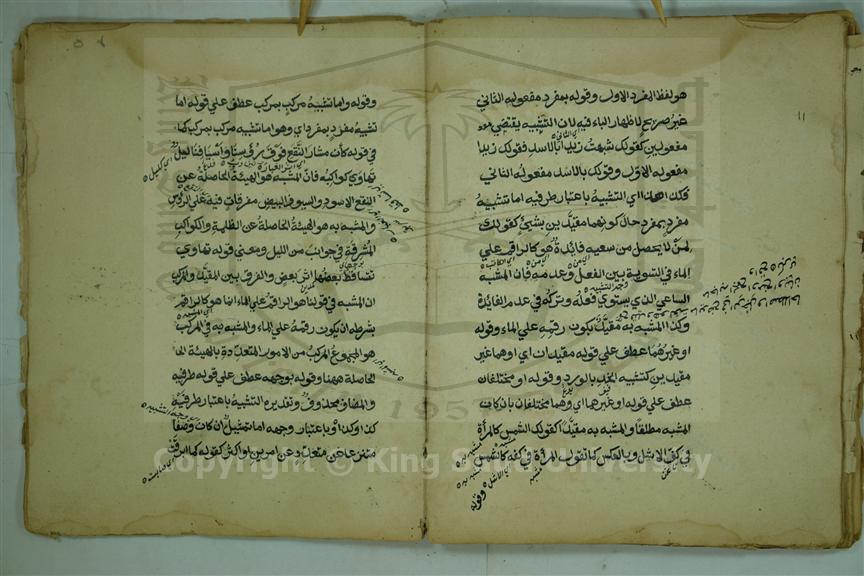 هو لفظ المفرد الاول وقوله بمفرد مفعوله الثاني
غير صريح لاظهار الباء فيه لان التشبيه يقتضي
مفعولين كقولك شبهت زيدا بالاسد فقولك زيدا
مفعوله الاول وقولك بالاسد مفعوله الثاني
اي التشبيه باعتبار طرفيه اما تشبيه
مفرد بمفرد حال كونهما مقيدين بشئ كقولك
لمن لا يحصل من سعيه فائدة هو كالراقم علي
الماء في التسوية بين الفعل وعدمه فان المشبه
الساعي الذي يستوي فعله وتركه في عدم الفائدة
وكذا المشبه به مقيد بكون رقمه علي الماء وقوله
او غيرهما عطف علي قوله مقيدان اي او هما غير
مقيدين كتشبيه الخد بالورد وقوله او مختلفان
عطف علي قوله او غيرهما اي وهما مختلفان بان كان
المشبه مطلقا والمشبه به مقيدا كقولك الشمس كالمرأة
في كف الاشل وبالعكس كما تقول المرأة في كفه كالشمس
وقوله
وقوله واما تشبيه مركب بمركب عطف علي قوله اما
تشبيه مفرد بمفرد اي وهو اما تشبيه مركب بمركب كما
في قوله كأن مثار النقع فوق رؤسنا واسيافنا ليل
تهاوي كواكبه فان المشبه هو الهيئة الحاصلة عن
النقع الاسود والسيوف البيض مفرقات فيه علي الرؤس
والمشبه به هو الهيئة الحاصلة عن الظلمة والكواكب
المشرقة في جوانب من الليل ومعني قوله تهاوي
تساقط بعضها اثر بعض والفرق بين المقيد والمركب
ان المشبه في قولنا هو الراقم علي الماء انما هو كالراقم
بشرط ان يكون رقمه علي الماء والمشبه به في المركب
هو المجموع المركب من الامور المتعددة بالهيئة الحا
الحاصلة ههنا وقوله بوجهه عطف علي قوله طرفيه
والمضاف محذوف وتقديره التشبيه باعتبار طرفيه
كذا وكذا او باعتبار وجهه اما تمثيل ان كان وصفا
منتزعا عن متعدد عن امرين او اكثر كقوله كما ابرقت
Copyright © King Saud University
1957